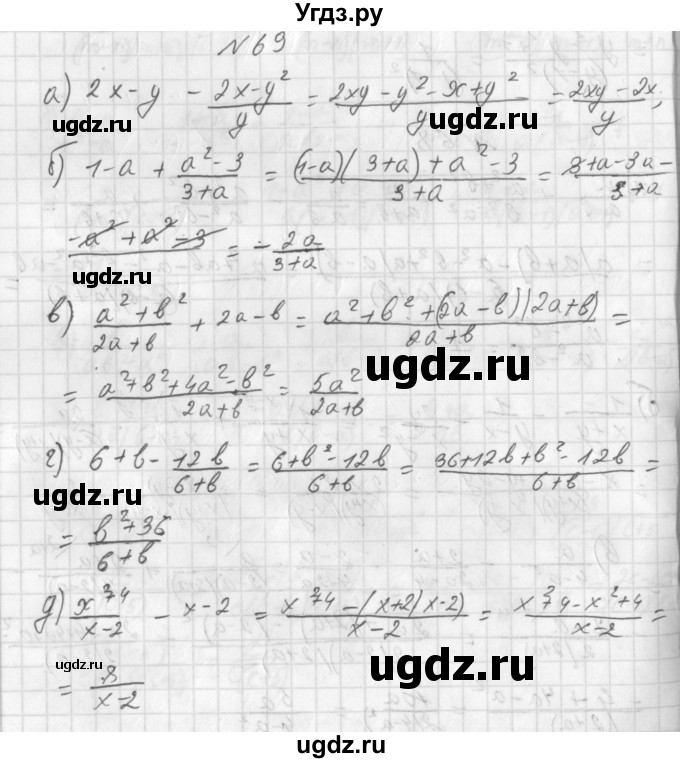 Угдз.ру
№69
а) 2x-y - (2x-y²)/y = (2xy-y²-x+y²)/y = (2xy-2x)/y;
угдз.ru
угдз.ru
б) 1-a + (a²-3)/(3+a) = ((1-a)(3+a)+a²-3)/(3+a) = (3+a-3a-)/(3+a)
(-a²+a²-3) = -2a/(3+a)
угдз.ru
в) (a²+b²)/(2a+b) + 2a-b = (a²+b²+(2a-b)(2a+b))/(2a+b) =
угдз.ru
= (a²+b²+4a²-b²)/(2a+b) = 5a²/(2a+b)
г) 6+b - 12b/(6+b) = (6+b²-12b)/(6+b) = (36+12b+b²-12b)/(6+b) =
угдз.ru
= (b²+36)/(6+b)
д) (x²+4)/(x-2) - x-2 = (x²+4-(x+2)(x-2))/(x-2) = (x²+4-x²+4)/(x-2) =
угдз.ru
= 8/(x-2)
угдз.ru
угдз.ru